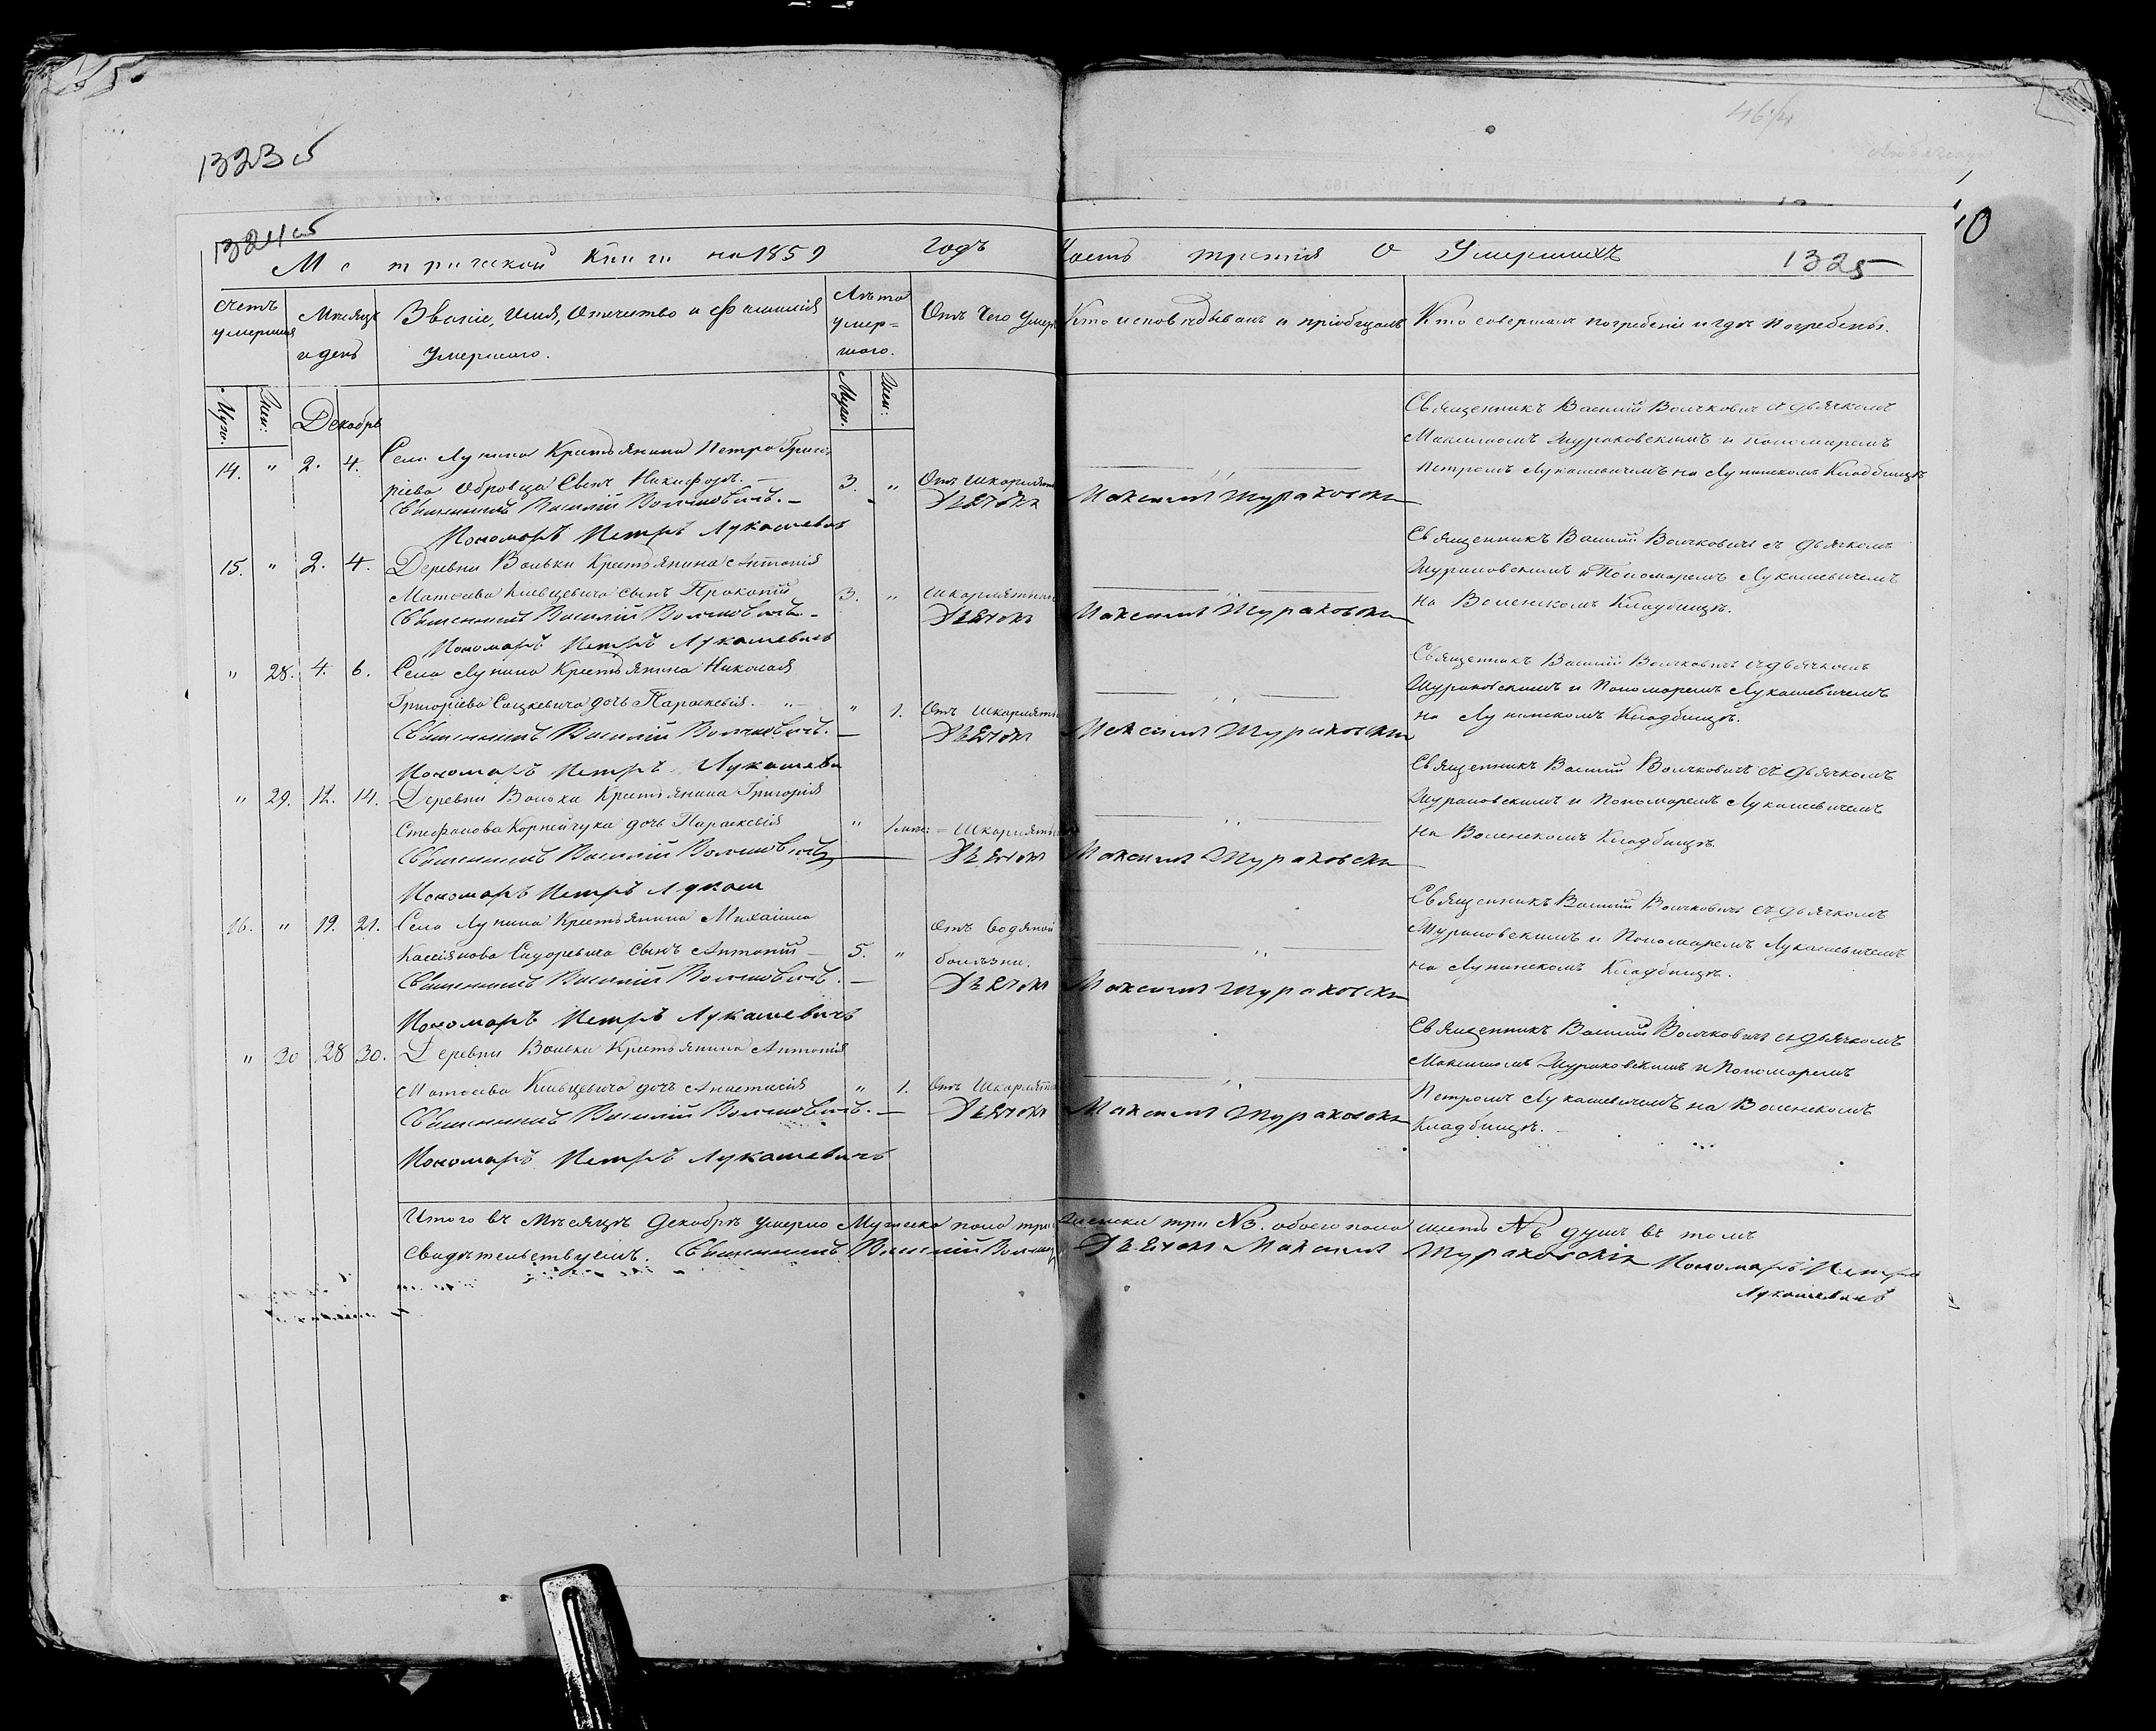 1323 об
1324 об
Метрической Книги на 1859 Годъ Часть третія О Умершихъ 1325
Счетъ умершихъ
Мѣсяцъ и день
Званіе, Имя, Отчество и Фамилія Умершаго.
Лѣта умер=шаго.
Отъ Чего Умеръ
Кто исповѣдывалъ и пріобщалъ
Кто совершалъ погребеніе и гдѣ погребены.
Муж. Жен: Декабрь Муж. Жен:
14. " 2. 4. Села Лунина Крестьянина Петра Григо
ріева Обровца Сынъ Никифоръ. 3. " Отъ Шкарлятины
Священникъ Василій Волчковичъ. Дьячокъ Максимъ Жураковскій
Пономарь Петръ Лукашевичъ
Священникъ Василій Волчковичъ съ дьячкомъ
Максимомъ Жураковскимъ и пономаремъ
Петромъ Лукашевичемъ на Лунинскомъ Кладбищѣ
15. " 2. 4. Деревни Вольки Крестьянина Антонія
Матѳеева Кивцевича сынъ Прокопій 3. " Шкарлятины
Священникъ Василій Волчковичъ. Дьячокъ Максимъ Жураковскій
Пономарь Петръ Лукашевичъ
Священникъ Василій Волчковичъ съ дьячкомъ
Жураковскимъ и Пономаремъ Лукашевичемъ
на Воленскомъ Кладбищѣ.
" 28. 4. 6. Села Лунина Крестьянина Николая
Григоріева Сацкевича дочь Параскевія. " 1. Отъ Шкарлятины
Священникъ Василій Волчковичъ. Дьячокъ Максимъ Жураковскій
Пономарь Петръ Лукашеви
Священникъ Василій Волчковичъ съ дьячкомъ
Жураковскимъ и Пономаремъ Лукашевичемъ
на Лунинскомъ Кладбищѣ.
" 29. 12. 14. Деревни Вольки Крестьянина Григорія
Стефанова Корнейчука дочь Параскевія " Шкарлятины
Священникъ Василій Волчковичъ Дьячокъ Максимъ Жураковскій
Пономарь Петръ Лукаш
Священникъ Василій Волчковичъ съ дьячкомъ
Жураковскимъ и Пономаремъ Лукашевичемъ
на Воленскомъ Кладбищѣ.
16. " 19. 21. Села Лунина Крестьянина Михаила Отъ водяной
Кассіянова Сидоревича Сынъ Антоній 5. " болѣзни.
Священникъ Василій Волчковичъ. Дьячокъ Максимъ Жураковскій
Пономарь Петръ Лукашевичъ
Священникъ Василій Волчковичъ съ дьячкомъ
Жураковскимъ и Пономаремъ Лукашевичемъ
на Лунинскомъ Кладбищѣ.
" 30 28 30. Деревни Вольки Крестьянина Антонія
Матѳеева Кивцевича дочь Анастасія " 1. Отъ Шкарлятины
Священникъ Василій Волчковичъ. Дьячокъ Максимъ Жураковскій
Пономарь Петръ Лукашевичъ
Священникъ Василій Волчковичъ съ дьячкомъ
Максимомъ Жураковскимъ и Пономаремъ
Петромъ Лукашевичемъ на Воленскомъ
Кладбищѣ.
Итого въ Мѣсяцѣ Декабрѣ умерло Мужеска пола три женска три №3. обоего пола шесть №6 душъ въ томъ
свидѣтельствуемъ. Священникъ Василій Волчковичъ Дьячокъ Максимъ Жураковскій Пономарь Петръ
Лукашевичъ